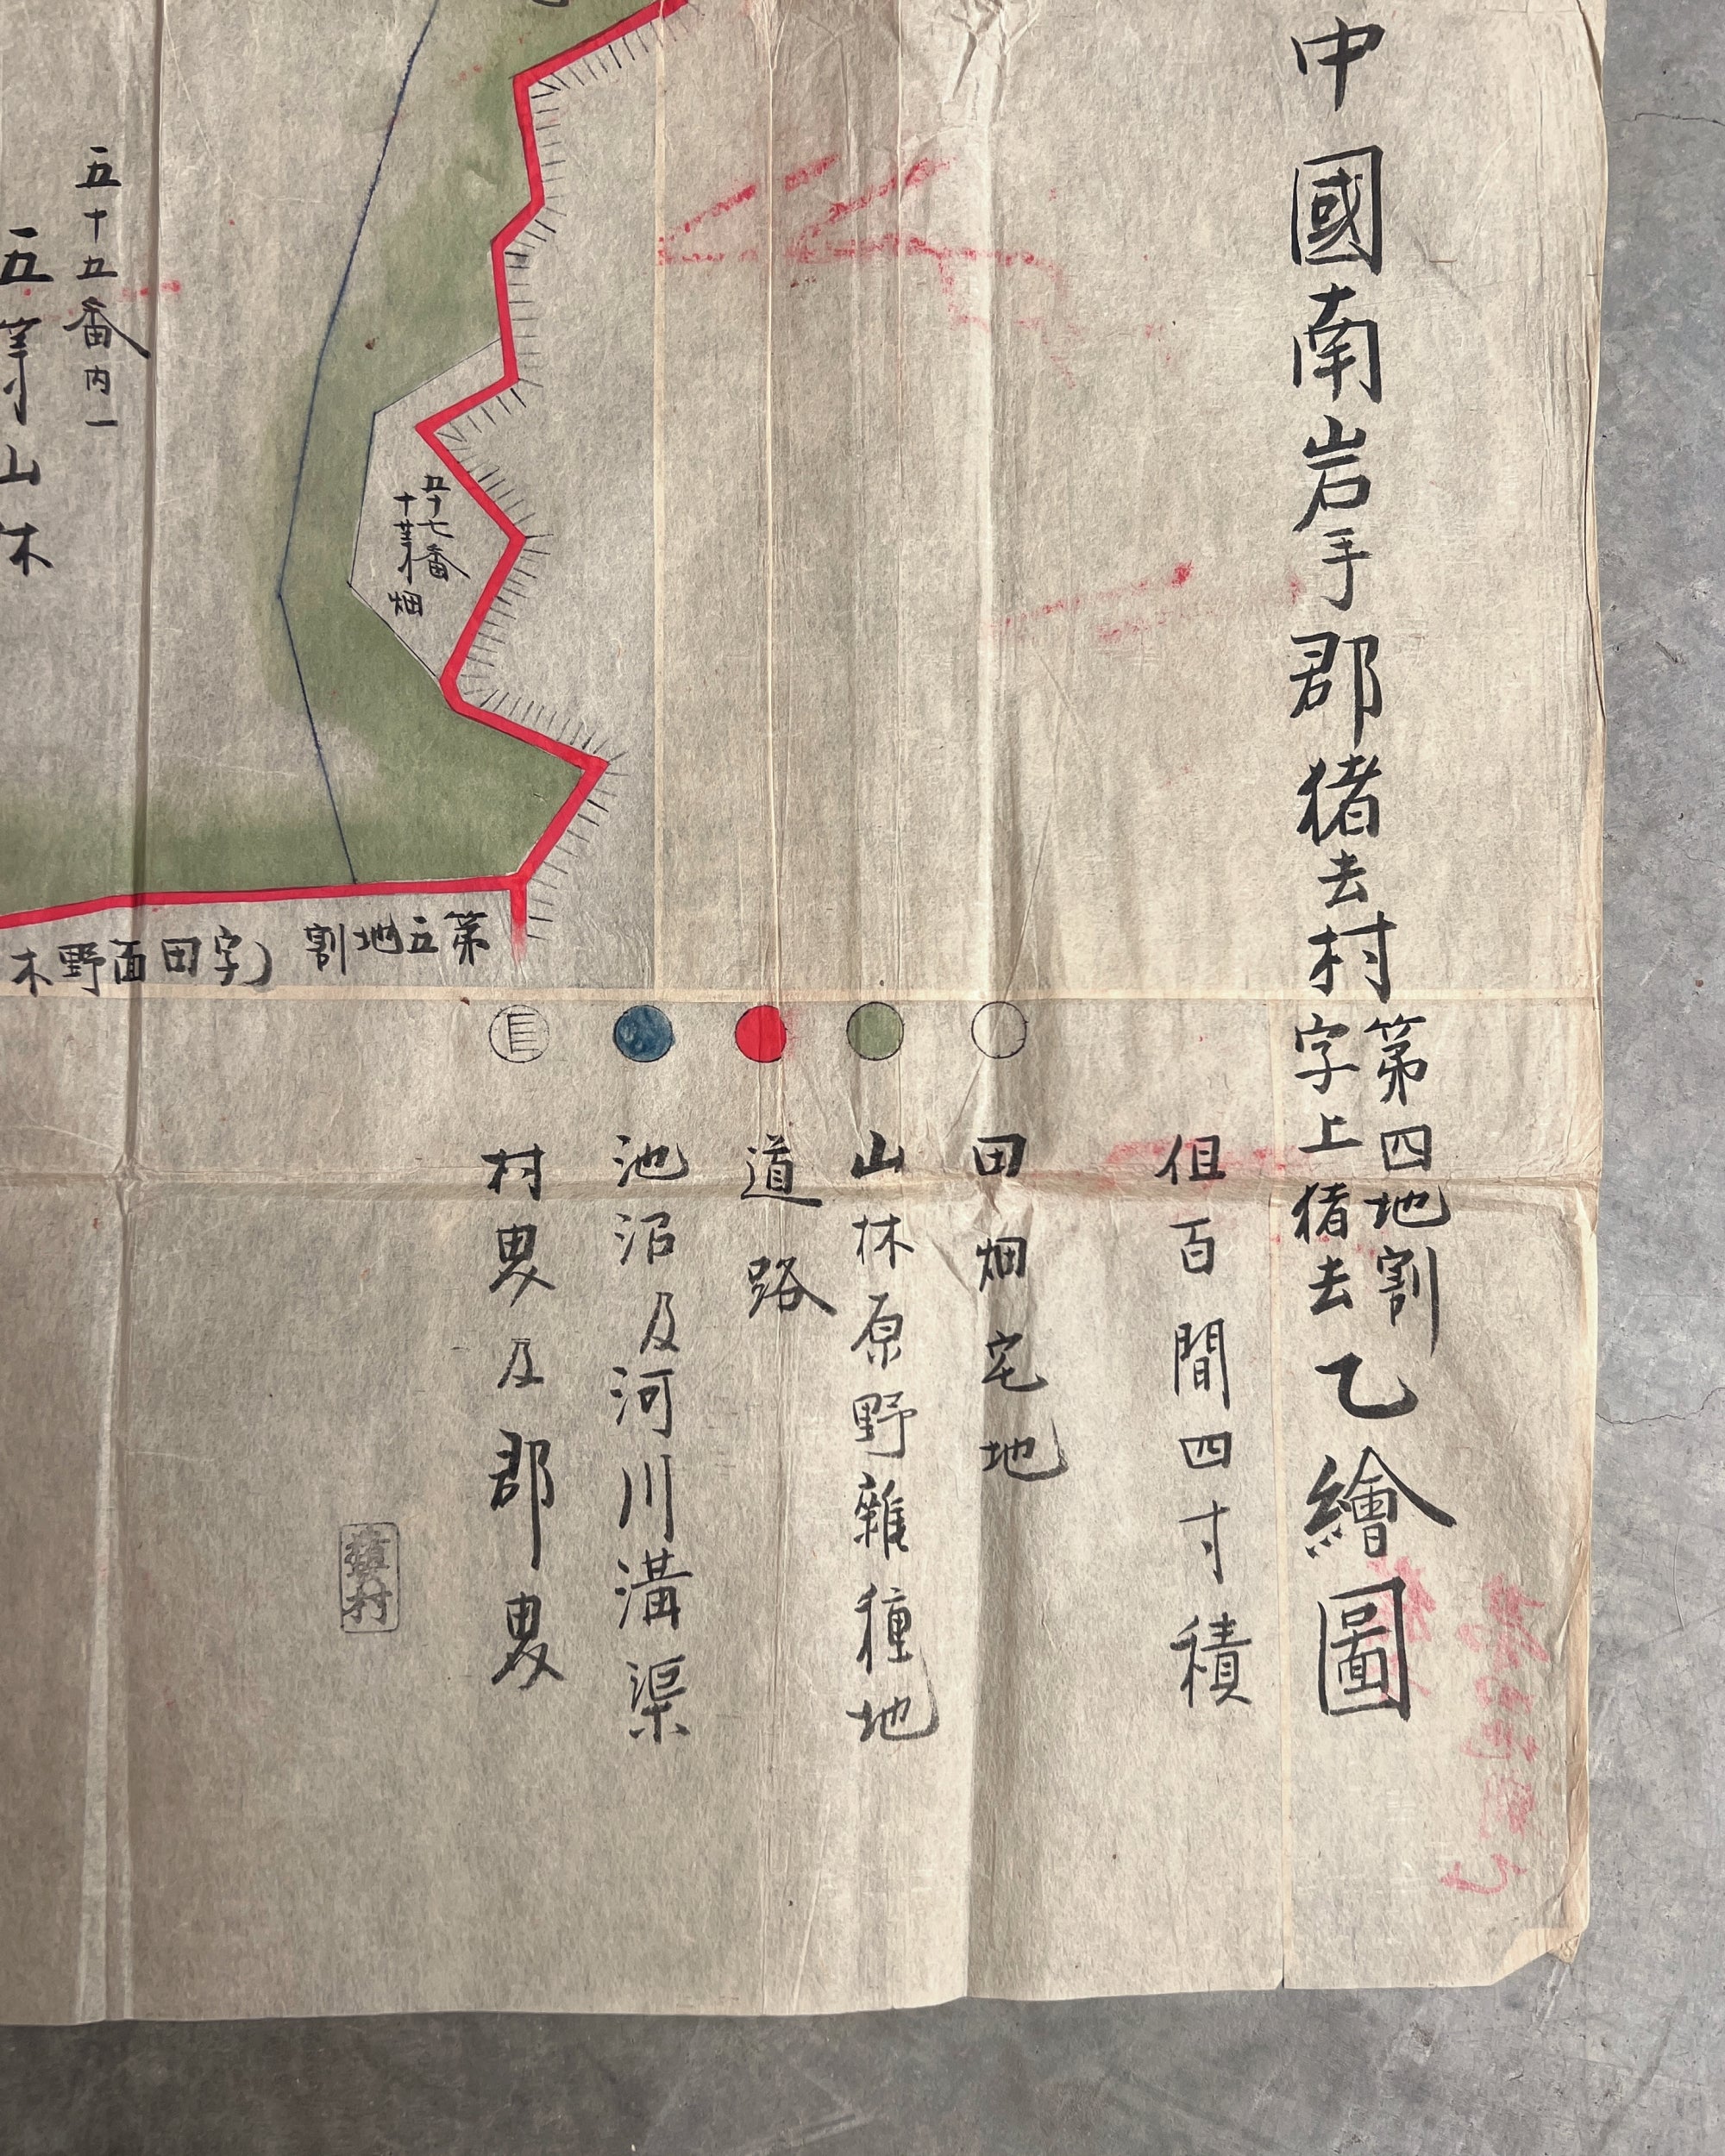 中國南岩手郡猪去村
第四地割
字上猪去
乙繪圖
但百間四寸積
田畑宅地
山林原野雜種地
道路
池沼及河川溝渠
村界及郡界
第五地割
字田面野木
五十七番
十等
畑
五十五番内一
五等山林